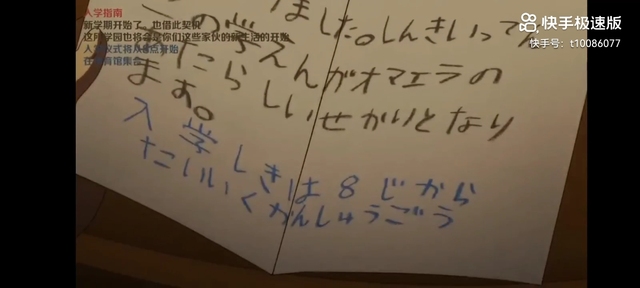 入学指南
新学期开始了。也借此契机
这所学园也将会是你们这些家伙的新生活的开始
人学仪式将从8点开始
在体育馆集合
快手极速版
快手号：t10086077
ました。しんきいってん
この学えんがオマエラの
あたらしいせかいとなり
ます。
入学しきは8じから
たいいくかんしゅうごう